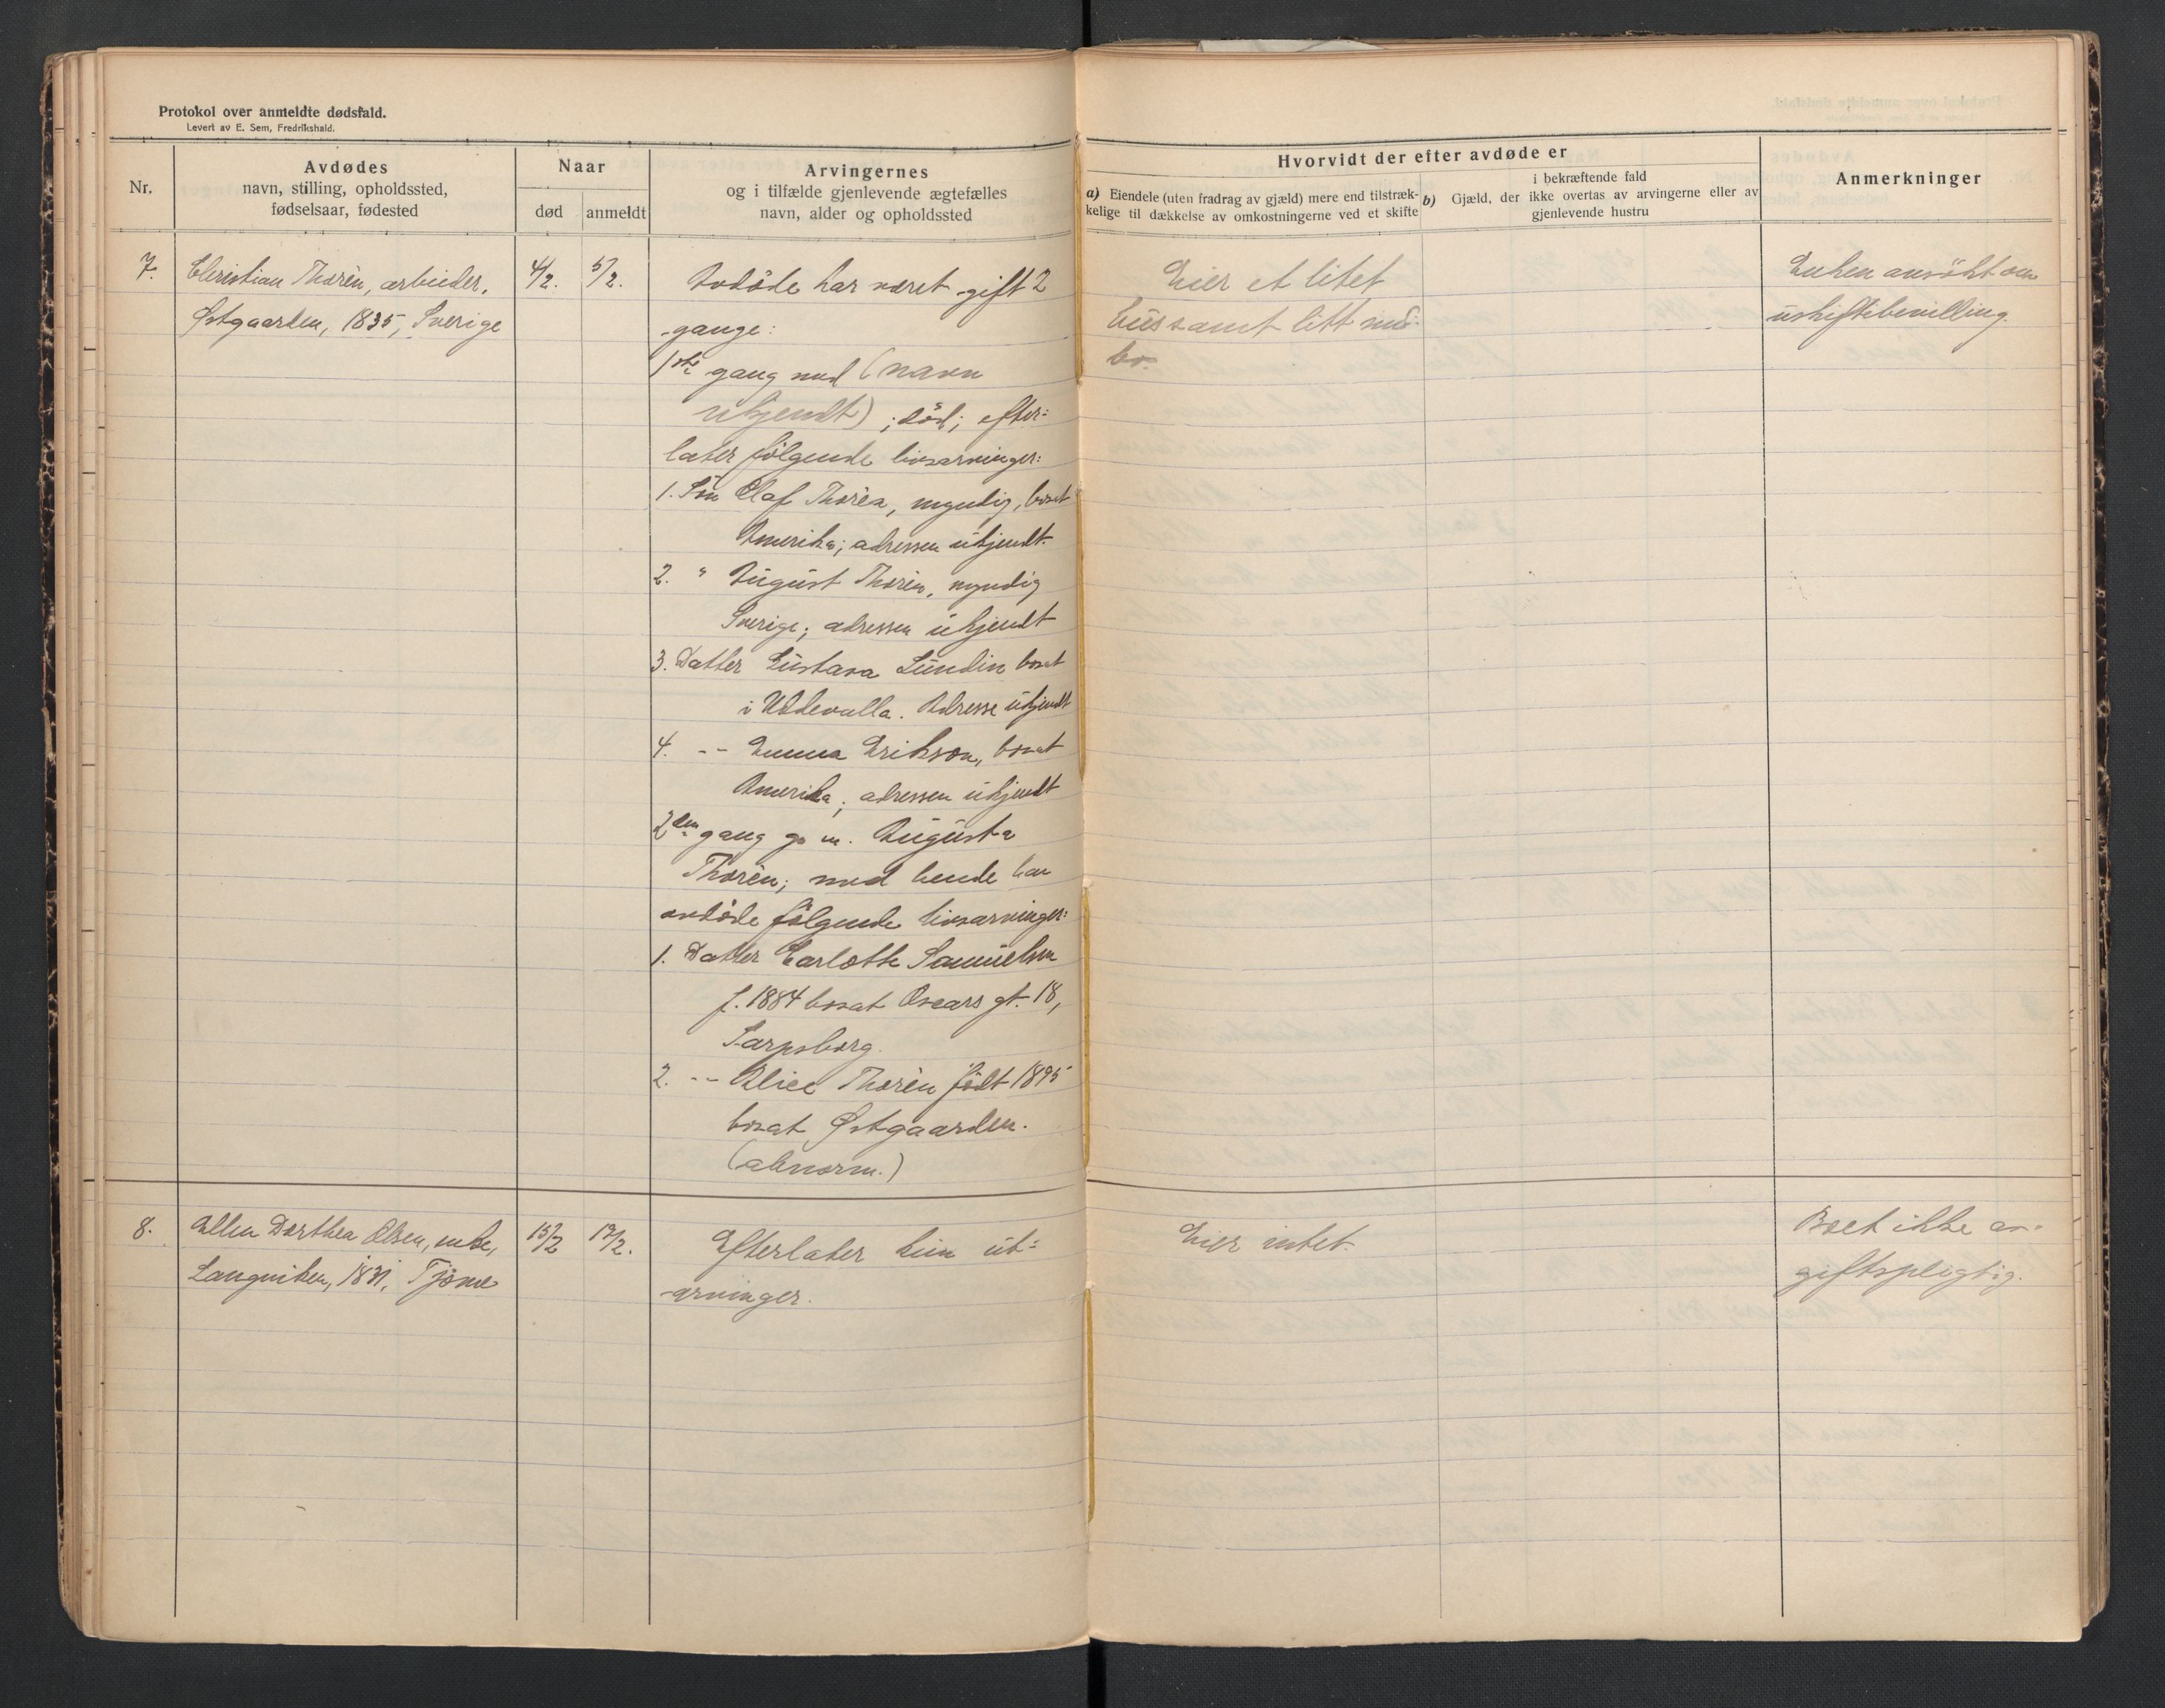 Protokol over anmeldte dødsfald.
Levert av E. Sem, Fredrikshald.
Nr.
Avdødes
navn, stilling, opholdssted,
fødselsaar, fødested
Naar
død
anmeldt
Arvingernes
og i tilfælde gjenlevende ægtefælles
navn, alder og opholdssted
Hvorvidt der efter avdøde er
a) Eiendele (uten fradrag av gjæld) mere end tilstræk-
kelige til dækkelse av omkostningerne ved et skifte
i bekræftende fald
b) Gjæld, der ikke overtas av arvingerne eller av
gjenlevende hustru
Anmerkninger
7.
Christian Thorèn, arbeider,
Østgaarden, 1835, Sverige
4/2.
5/2.
Avdöde har været gift 2
gange:
1ste gang med (navn
ukjendt); död; efter=
later fölgende livsarvinger:
1. Sön Olaf Thorèn, myndig, bosat
Amerika; adressen ukjendt.
2. " August Thorèn, myndig
Sverige; adressen ukjendt
3. Datter Gustava Lundin bosat
i Uddevalla. Adresse ukjendt
4. -- Emma Erikson, bosat
Amerika; adressen ukjendt
2den gang g. m. Augusta
Thorèn; med hende har
avdöde fölgende livsarvinger:
1. Datter Carlotte Samuelsen
f. 1884 bosat Oscars gt. 18,
Sarpsborg.
2. -- Alice Thorèn födt 1895
bosat Østgaarden.
(abnorm.)
Eier et litet
hus samt litt ind=
bo.
Enken ansökt om
uskiftebevilling.
8.
Ellen Dorthea Olsen, enke,
Langviken, 1831, Tjöme
15/2
19/2.
Efterlater kun ut=
arvinger.
Eier intet.
Boet ikke av=
giftspligtig.